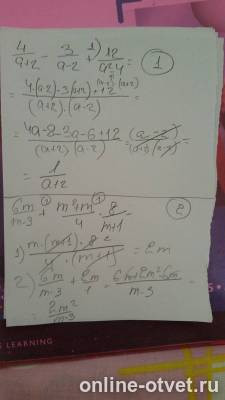 4/(a+2) - 3/(a-2) + 12/(a²-4) = ①
= (4·(a-2)-3(a+2)+12)/((a+2)·(a-2)) =
= (4a-8-3a-6+12)/((a+2)(a-2)) = (a-2)/((a+2)(a-2))
= 1/(a+2)
6m/(m-3) + (m²+m)/4 · 8/(m+1) ②
1) (m·(m+1)·8²)/(4·(m+1)) = 2m
2) 6m/(m-3) + 2m/1 = (6m+2m²-6m)/(m-3) =
= 2m²/(m-3)
S LEARNING
online-otvet.ru